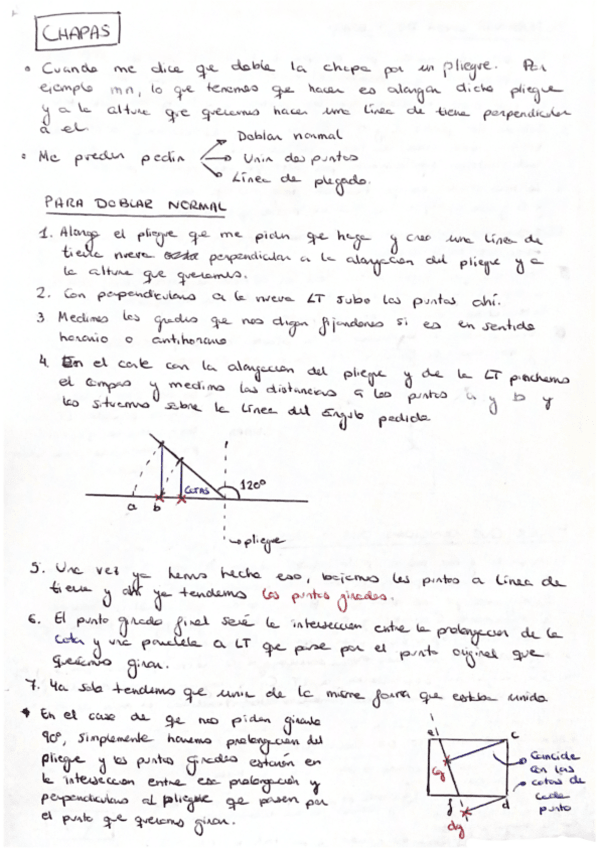 CHAPAS
• Cuando me dice que doble la chapa por un pliegue. Por
ejemplo mn, lo que tenemos que hacer es alargar dicho pliegue
y a la altura que queramos hacer una línea de tierra perpendicular
a el.
• Me pueden pedir
Doblar normal
Unir dos puntos
Línea de plegado.
PARA DOBLAR NORMAL
1. Alargo el pliegue que me piden que haga y creo una línea de
tierra nueva perpendicular a la alargacion del pliegue y a
la altura que queramos.
2. Con perpendiculares a la nueva LT subo los puntos ahí.
3 Medimos los grados que nos digan fijandonos si es en sentido
horario o antihorario
4. En el corte con la alargacion del pliegue y de la LT pinchamos
el compas y medimos las distancias a los puntos a y b y
los situamos sobre la línea del ángulo pedida
120º
cotas
a
b
pliegue
5. Una vez ya hemos hecho eso, bajamos los puntos a línea de
tierra y ahí ya tendremos los puntos girados.
6. El punto girado final será la interseccion entre la prolongacion de la
cota y una paralela a LT que pase por el punto original que
queriamos girar.
7. Ya solo tendremos que unir de la misma forma que estaba unida
En el caso de que nos piden girarlo
90º, simplemente haremos prolongacion del
pliegue y los puntos girados estarán en
la interseccion entre esa prolongacion y
perpendiculares al pliegue que pasen por
el punto que queramos girar.
e
c
cg
f
d
dg
Coincide
con las
cotas de
cada
punto